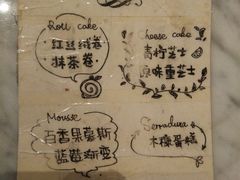 Roll cake
红丝绒卷
抹茶卷
Cheese cake
青柠芝士
原味重芝士
Mousse
百香果慕斯
蓝莓渐变
Serradura
木糠蛋糕